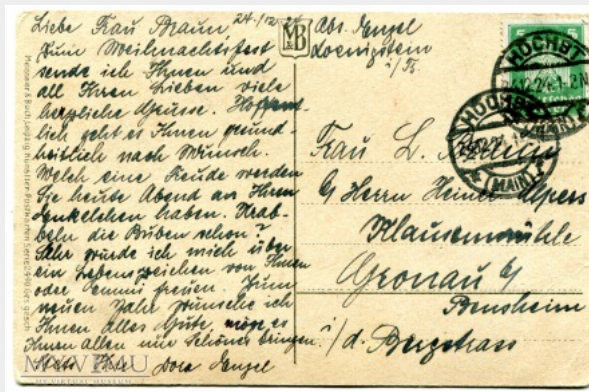 Liebe Frau Braun, 24./12.24
Zum Weihnachtsfest
sende ich Ihnen und
all Ihren Lieben viele
herzliche Grüsse. Hoffent-
lich geht es Ihnen gesund-
heitlich nach Wunsch.
Welch eine Freude werden
Sie heute Abend an Ihren
Enkelchen haben. Krab-
beln die Buben schon?
Sehr würde ich mich über
ein Lebenszeichen von Ihnen
oder Emmi freuen. Zum
neuen Jahr wünsche ich
Ihnen alles Gute, möge es
Ihnen allen nur Schönes bringen.
Stets Ihre Dora Engel
Meissner & Buch, Leipzig Künstler-Postkarten Serie
M&B
Abs. Engel
Koenigstein
i/Ts.
5
HÖCHST
24.12.24.1-2N
HÖCHST
(MAIN)
Frau L. Braun
b/ Herrn Heiner Alpers
Klausenmühle
Gronau b/
Bensheim
i/d. Bergstrass
MYVIMU
MY VIRTUAL MUSEUM